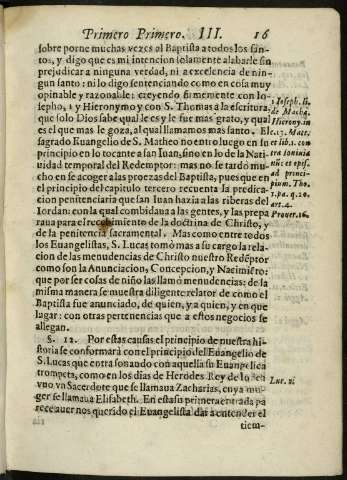 Primero Primero. III. 16
sobre porne muchas vezes al Baptista a todos los san-
tos, y digo que es mi intencion solamente alabarle sin
prejudicar a ninguna verdad, ni a excelencia de nin-
gun santo: ni lo digo sentenciando como en cosa muy
opinable y razonable: creyendo firmemente con Io-
sepho, 1 y Hieronymo y con S. Thomas a la escritura:
que solo Dios sabe qual le es y le fue mas grato, y qual
es el que mas le goza, al qual llamamos mas santo. El
sagrado Euangelio de S. Matheo no entro luego en su
principio en lo tocante a san Iuan, sino en lo de la Nati-
uidad temporal del Redemptor: mas no se tardó mu-
cho en se acoger a las proezas del Baptista, pues que en
el principio del capitulo tercero recuenta la predica-
cion penitenciaria que san Iuan hazia a las riberas del
Iordan: con la qual combidaua a las gentes, y las prepa
raua para el recebimiento de la doctrina de Christo, y
de la penitencia sacramental. Mas como entre todos
los Euangelistas, S. Lucas tomò mas a su cargo la rela-
cion de las menudencias de Christo nuestro Redẽptor
como son la Anunciacion, Concepcion, y Nacimiẽto:
que por ser cosas de niño las llamo menudencias: de la
misma manera se muestra diligente relator de como el
Baptista fue anunciado, de quien, y a quien, y en que
lugar: con otras pertenencias que a estos negocios se
allegan.
S. 12. Por estas causas el principio de nuestra hi-
storia se conformará con el principio del Euangelio de
S. Lucas que entra sonando con aquella su Euangelica
trompeta, como en los dias de Herodes Rey de Iudea
vuo vn Sacerdote que se llamaua Zacharias, cuya mu-
ger se llamaua Elisabeth. En esta su primera entrada pa
rece auernos querido el Euangelista dar a entender el
tiem-
1 Ioseph. li.
de Macha.
Hieronym. in
c. 13. Matt.
et lib. 1. con
tra Iouinia
nũ: et epist.
ad princi-
pium. Tho.
1. pa. q. 20.
art. 4.
Prouer. 16.
Luc. 1.